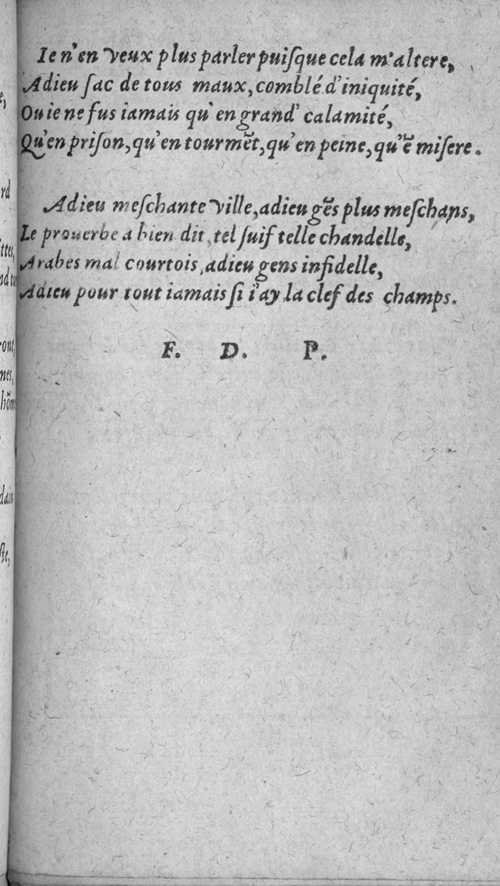 Ie n'en veux plus parler puiſque cela m'altere,
Adieu ſac de tous maux, comblé d'iniquité,
Ou ie ne fus iamais qu'en grand' calamité,
Qu'en priſon, qu'en tourmēt, qu'en peine, qu'ē miſere.
Adieu meſchante ville, adieu gēs plus meſchans,
Le prouerbe a bien dit, tel ſuif telle chandelle,
Arabes mal courtois, adieu gens infidelle,
Adieu pour tout iamais ſi i'ay la clef des champs.
F. D. P.